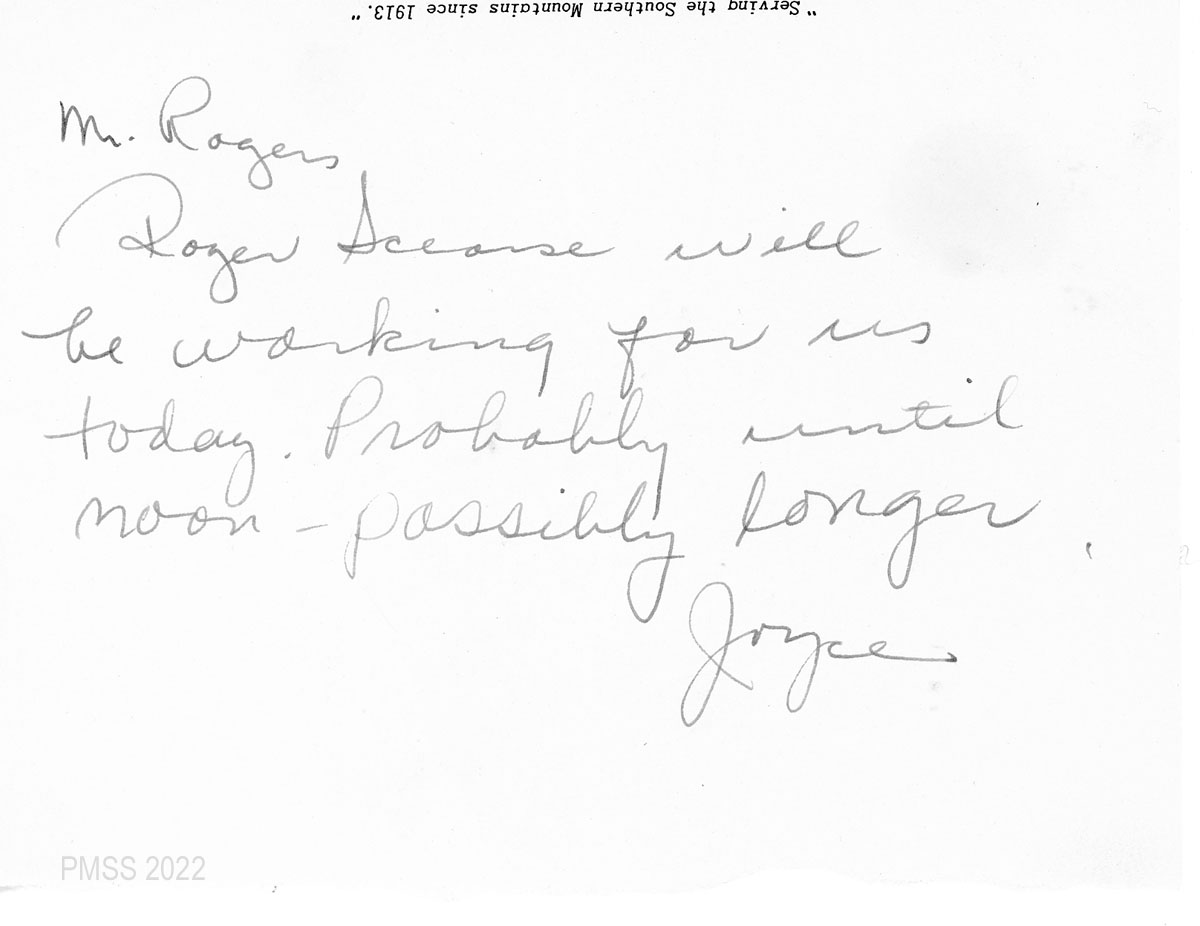 "Serving the Southern Mountains since 1913."
Mr. Rogers
Roger Scearse will
be working for us
today. Probably until
noon - possibly longer.
Joyce
PMSS 2022